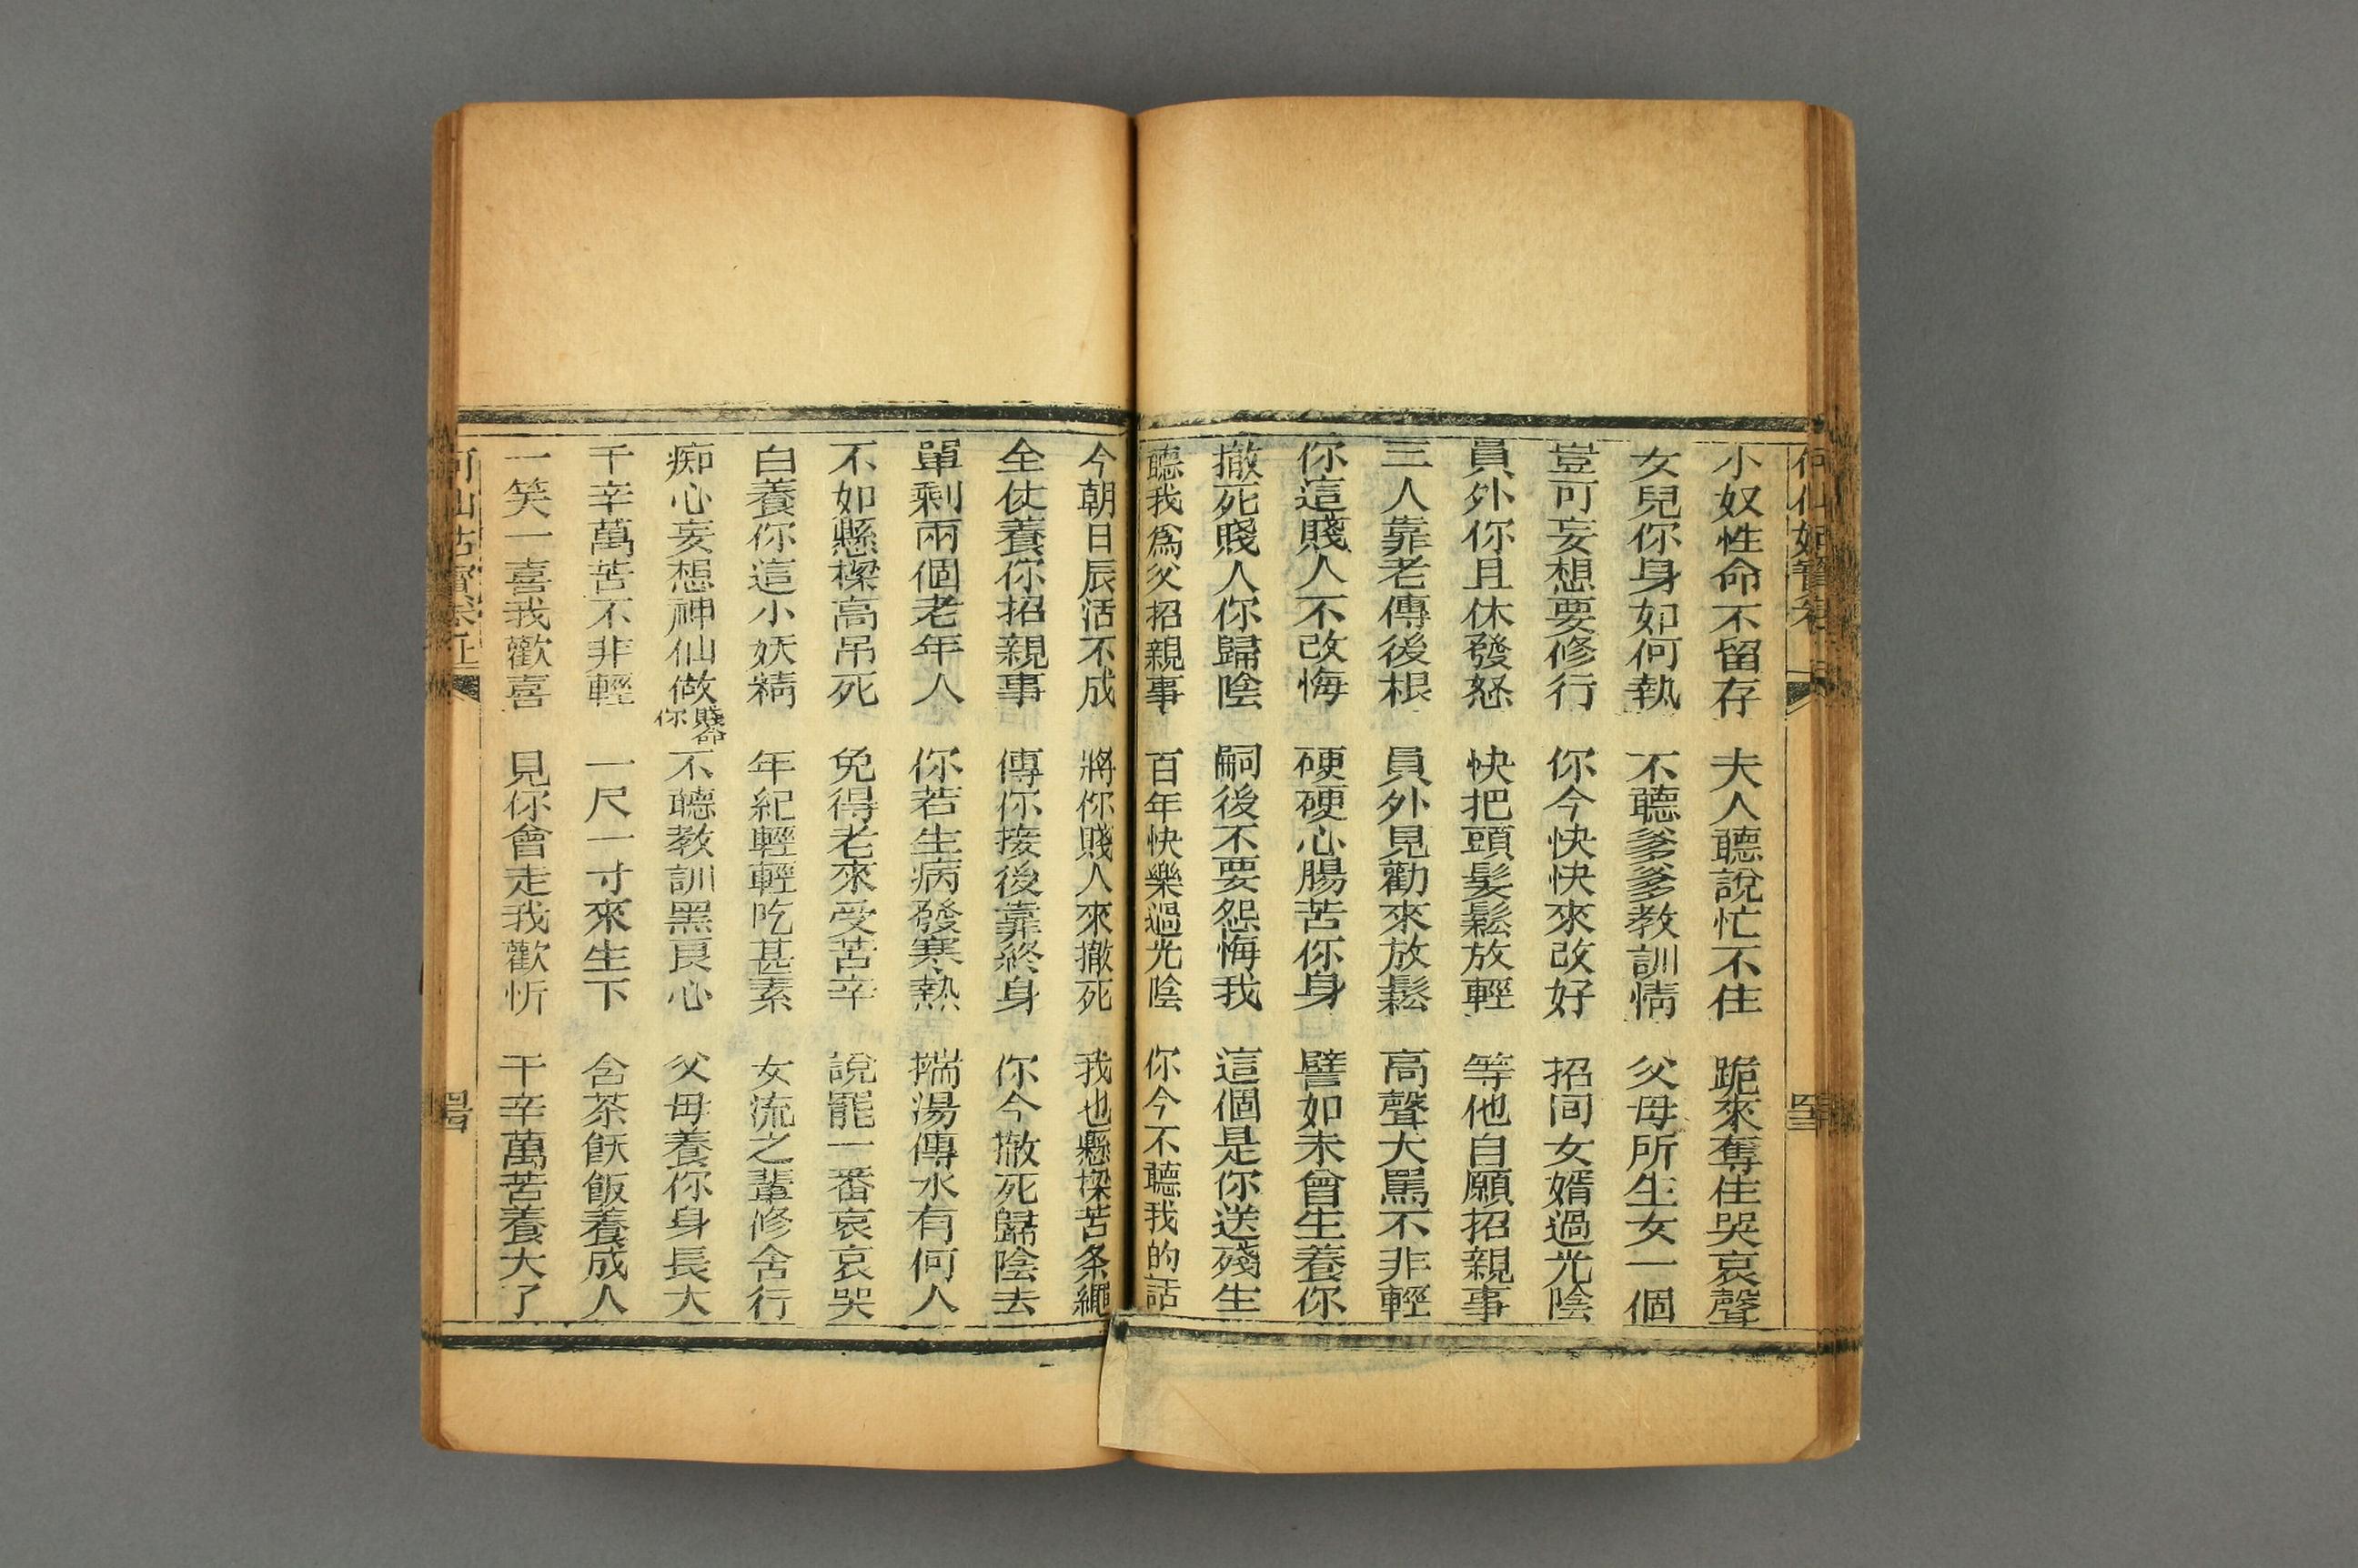 何仙姑寶卷
四三
小奴性命不留存 夫人聽說忙不住 跪來奪住哭哀聲
女兒你身如何執 不聽爹爹教訓情 父母所生女一個
豈可妄想要修行 你今快快來改好 招同女婿過光陰
員外你且休發怒 快把頭髮鬆放輕 等他自願招親事
三人靠老傳後根 員外見勸來放鬆 高聲大罵不非輕
你這賤人不改悔 硬硬心腸苦你身 譬如未曾生養你
撤死賤人你歸陰 嗣後不要怨悔我 這個是你送殘生
聽我為父招親事 百年快樂過光陰 你今不聽我的話
今朝日辰活不成 將你賤人來撤死 我也懸樑苦条繩
全仗養你招親事 傳你接後靠終身 你今撤死歸陰去
單剩兩個老年人 你若生病發寒熱 揣湯傳水有何人
不如懸樑高吊死 免得老來受苦辛 說罷一番哀哀哭
白養你這小妖精 年紀輕輕吃甚素 女流之輩修舍行
痴心妄想神仙做 賤命你 不聽教訓黑良心 父母養你身長大
千辛萬苦不非輕 一尺一寸來生下 含茶飫飯養成人
一笑一喜我歡喜 見你會走我歡忻 千辛萬苦養大了
何仙姑寶卷上
四百